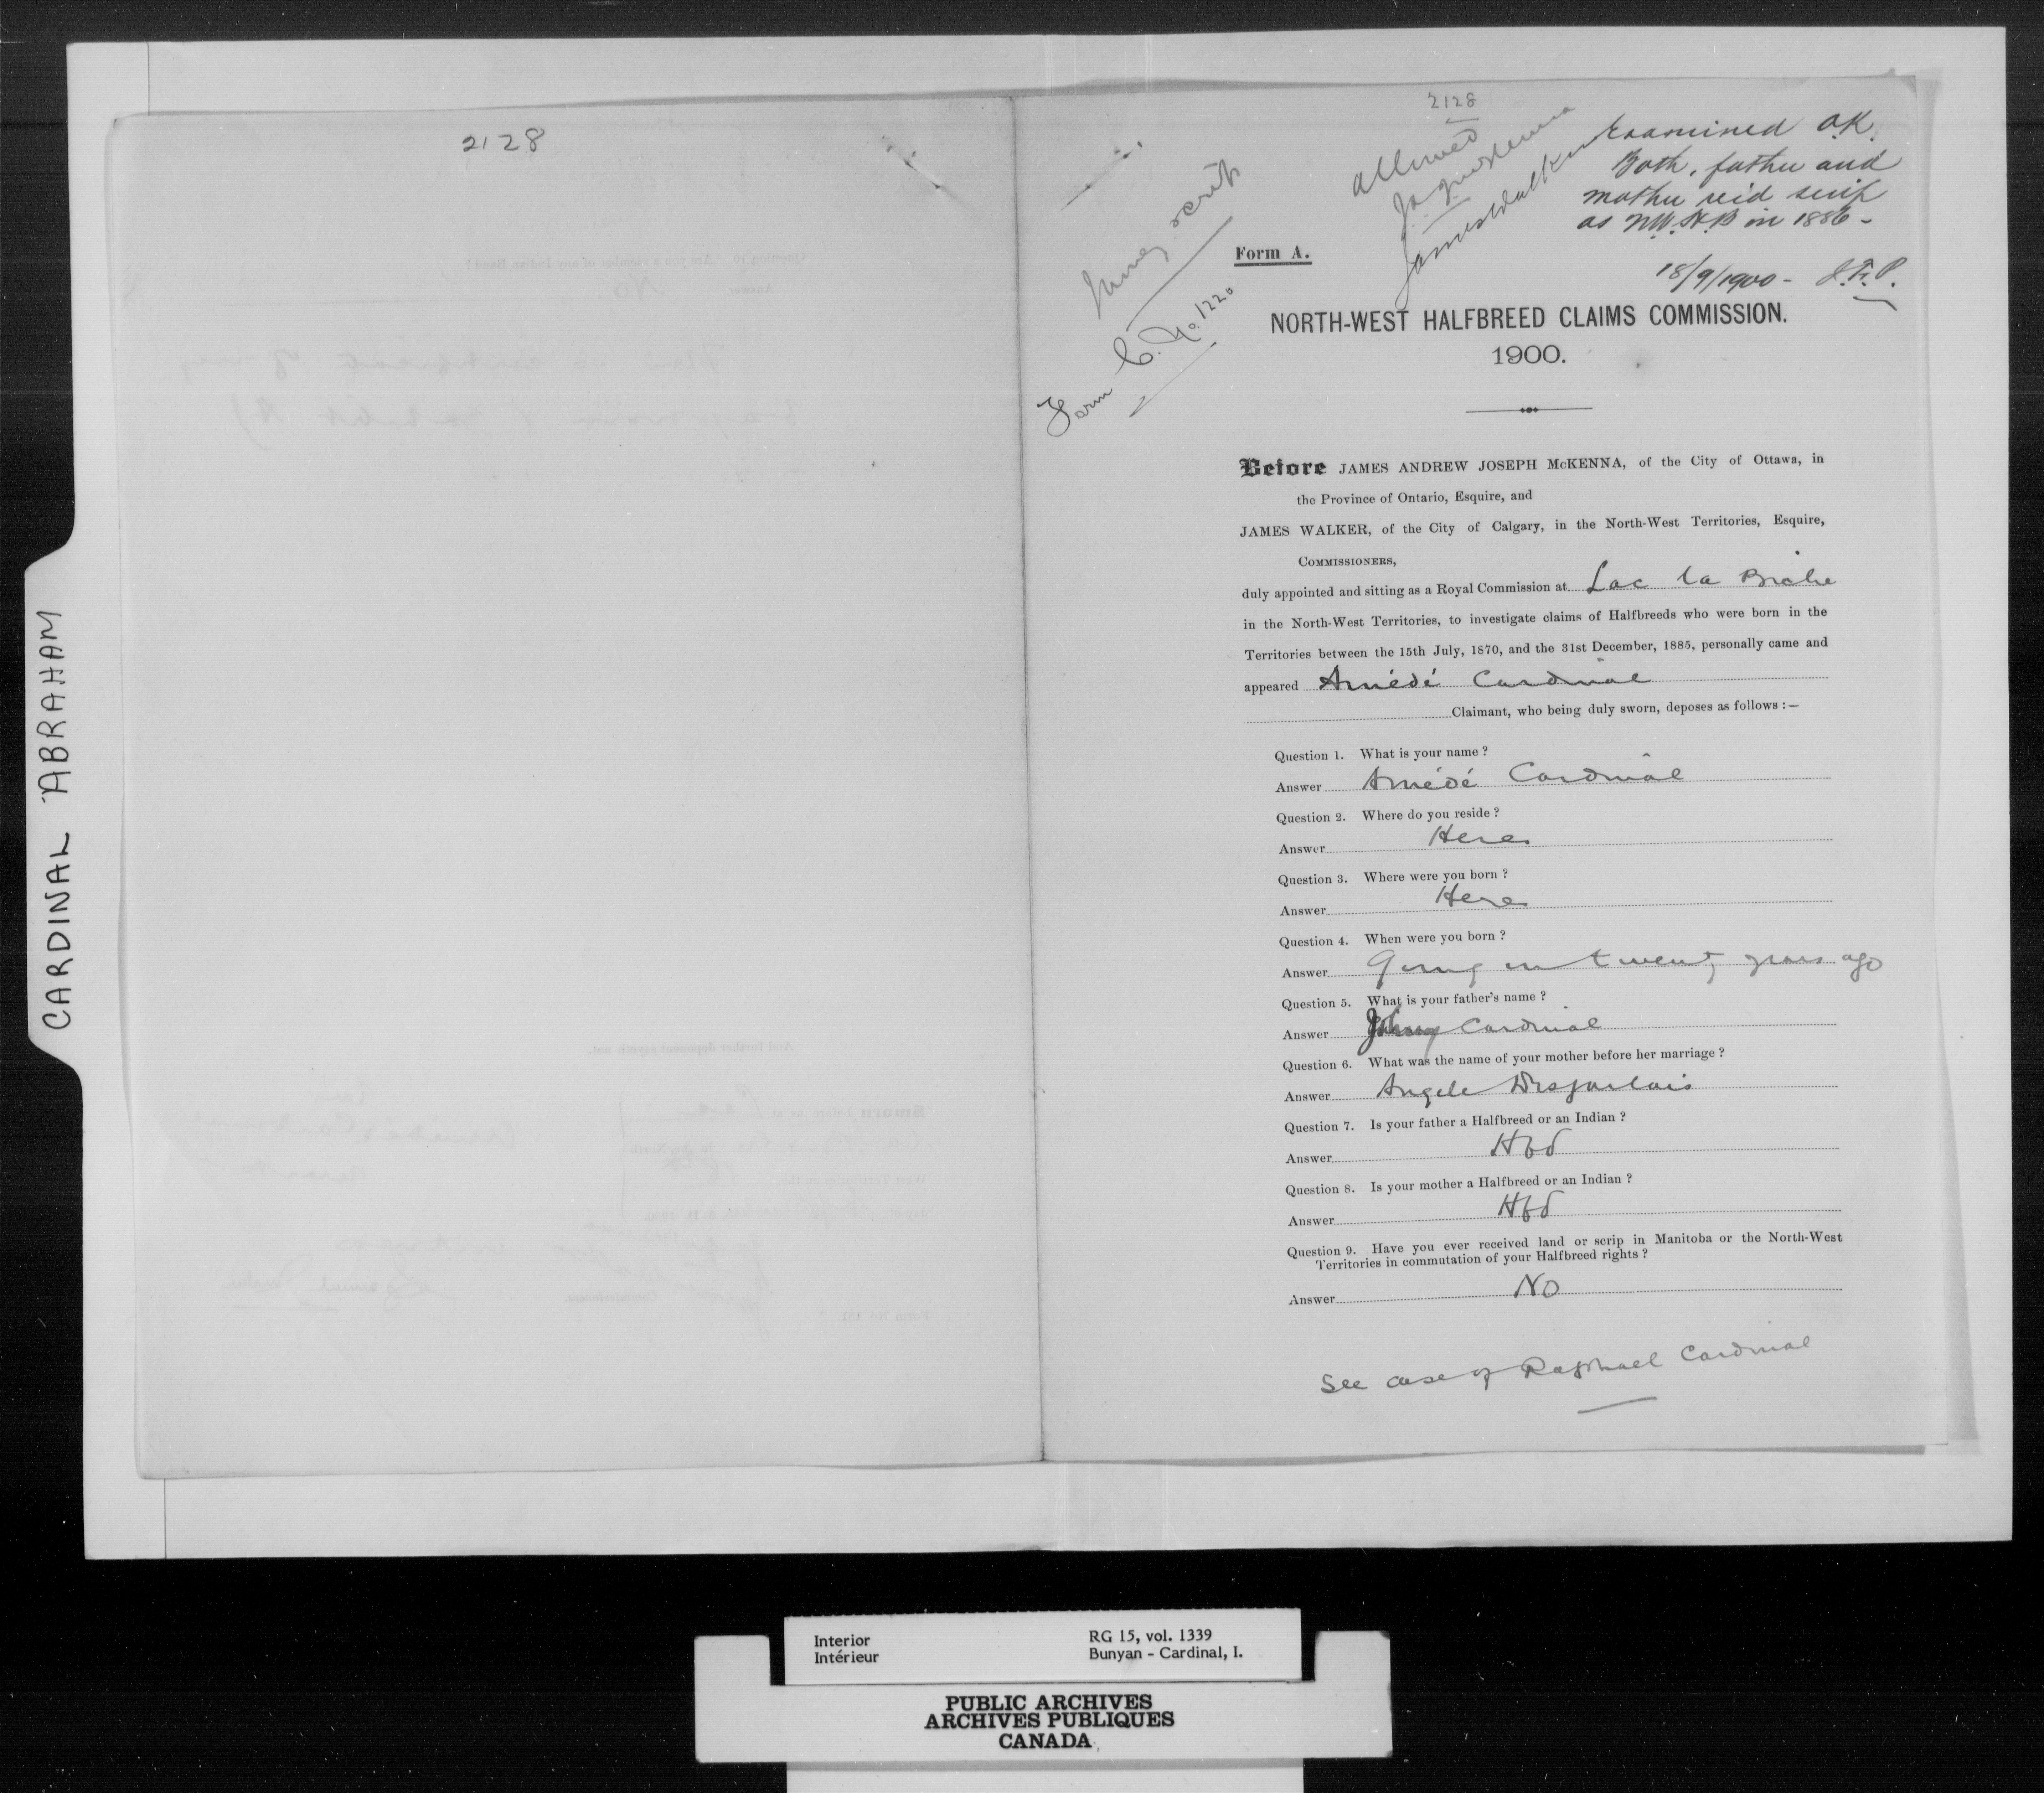 CARDINAL ABRAHAM
2128
2128
allowed
JAMcKenna
James Walker
Examined O.K.
Both, father and
mother rec'd scrip
as N.W.H.B in 1886 -
18/9/1900 - J.F.P.
Money scrip
Form C. No. 1220
Form A.
NORTH-WEST HALFBREED CLAIMS COMMISSION.
1900.
Before JAMES ANDREW JOSEPH McKENNA, of the City of Ottawa, in
the Province of Ontario, Esquire, and
JAMES WALKER, of the City of Calgary, in the North-West Territories, Esquire,
COMMISSIONERS,
duly appointed and sitting as a Royal Commission at Lac la Biche
in the North-West Territories, to investigate claims of Halfbreeds who were born in the
Territories between the 15th July, 1870, and the 31st December, 1885, personally came and
appeared Amédé Cardinal
Claimant, who being duly sworn, deposes as follows :—
Question 1. What is your name ?
Answer Amédé Cardinal
Question 2. Where do you reside ?
Answer Here
Question 3. Where were you born ?
Answer Here
Question 4. When were you born ?
Answer Going on twenty years ago
Question 5. What is your father's name ?
Answer Johnny Cardinal
Question 6. What was the name of your mother before her marriage ?
Answer Angele Desjarlais
Question 7. Is your father a Halfbreed or an Indian ?
Answer Hbd
Question 8. Is your mother a Halfbreed or an Indian ?
Answer Hbd
Question 9. Have you ever received land or scrip in Manitoba or the North-West
Territories in commutation of your Halfbreed rights ?
Answer No
See case of Raphael Cardinal
Interior
Intérieur
RG 15, vol. 1339
Bunyan - Cardinal, I.
PUBLIC ARCHIVES
ARCHIVES PUBLIQUES
CANADA